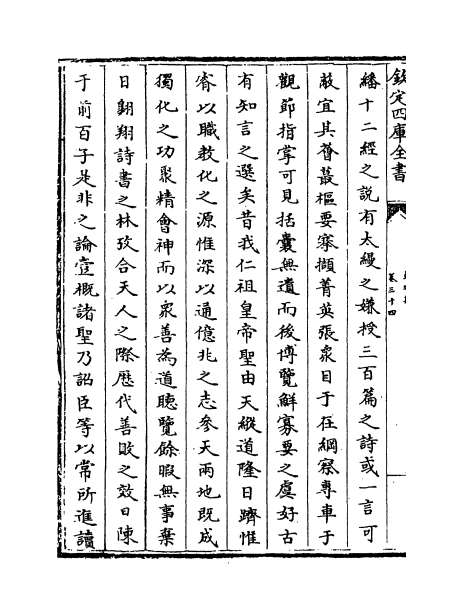 欽定四庫全書
卷三十四
繙十二經之說有太縵之嫌授三百篇之詩或一言可
蔽宜其薈蕞樞要寀擷菁英張衆目于在綱察專車于
觀節指掌可見括囊無遺而後博覽鮮寡要之虞好古
有知言之選矣昔我仁祖皇帝聖由天縱道隆日躋惟
睿以職教化之源惟深以通億兆之志參天兩地旣成
獨化之功聚精會神而以衆善為道聽覽餘暇無事棄
日翺翔詩書之林孜合天人之際歴代善敗之效日陳
于前百子是非之論壹概諸聖乃詔臣等以常所進讀